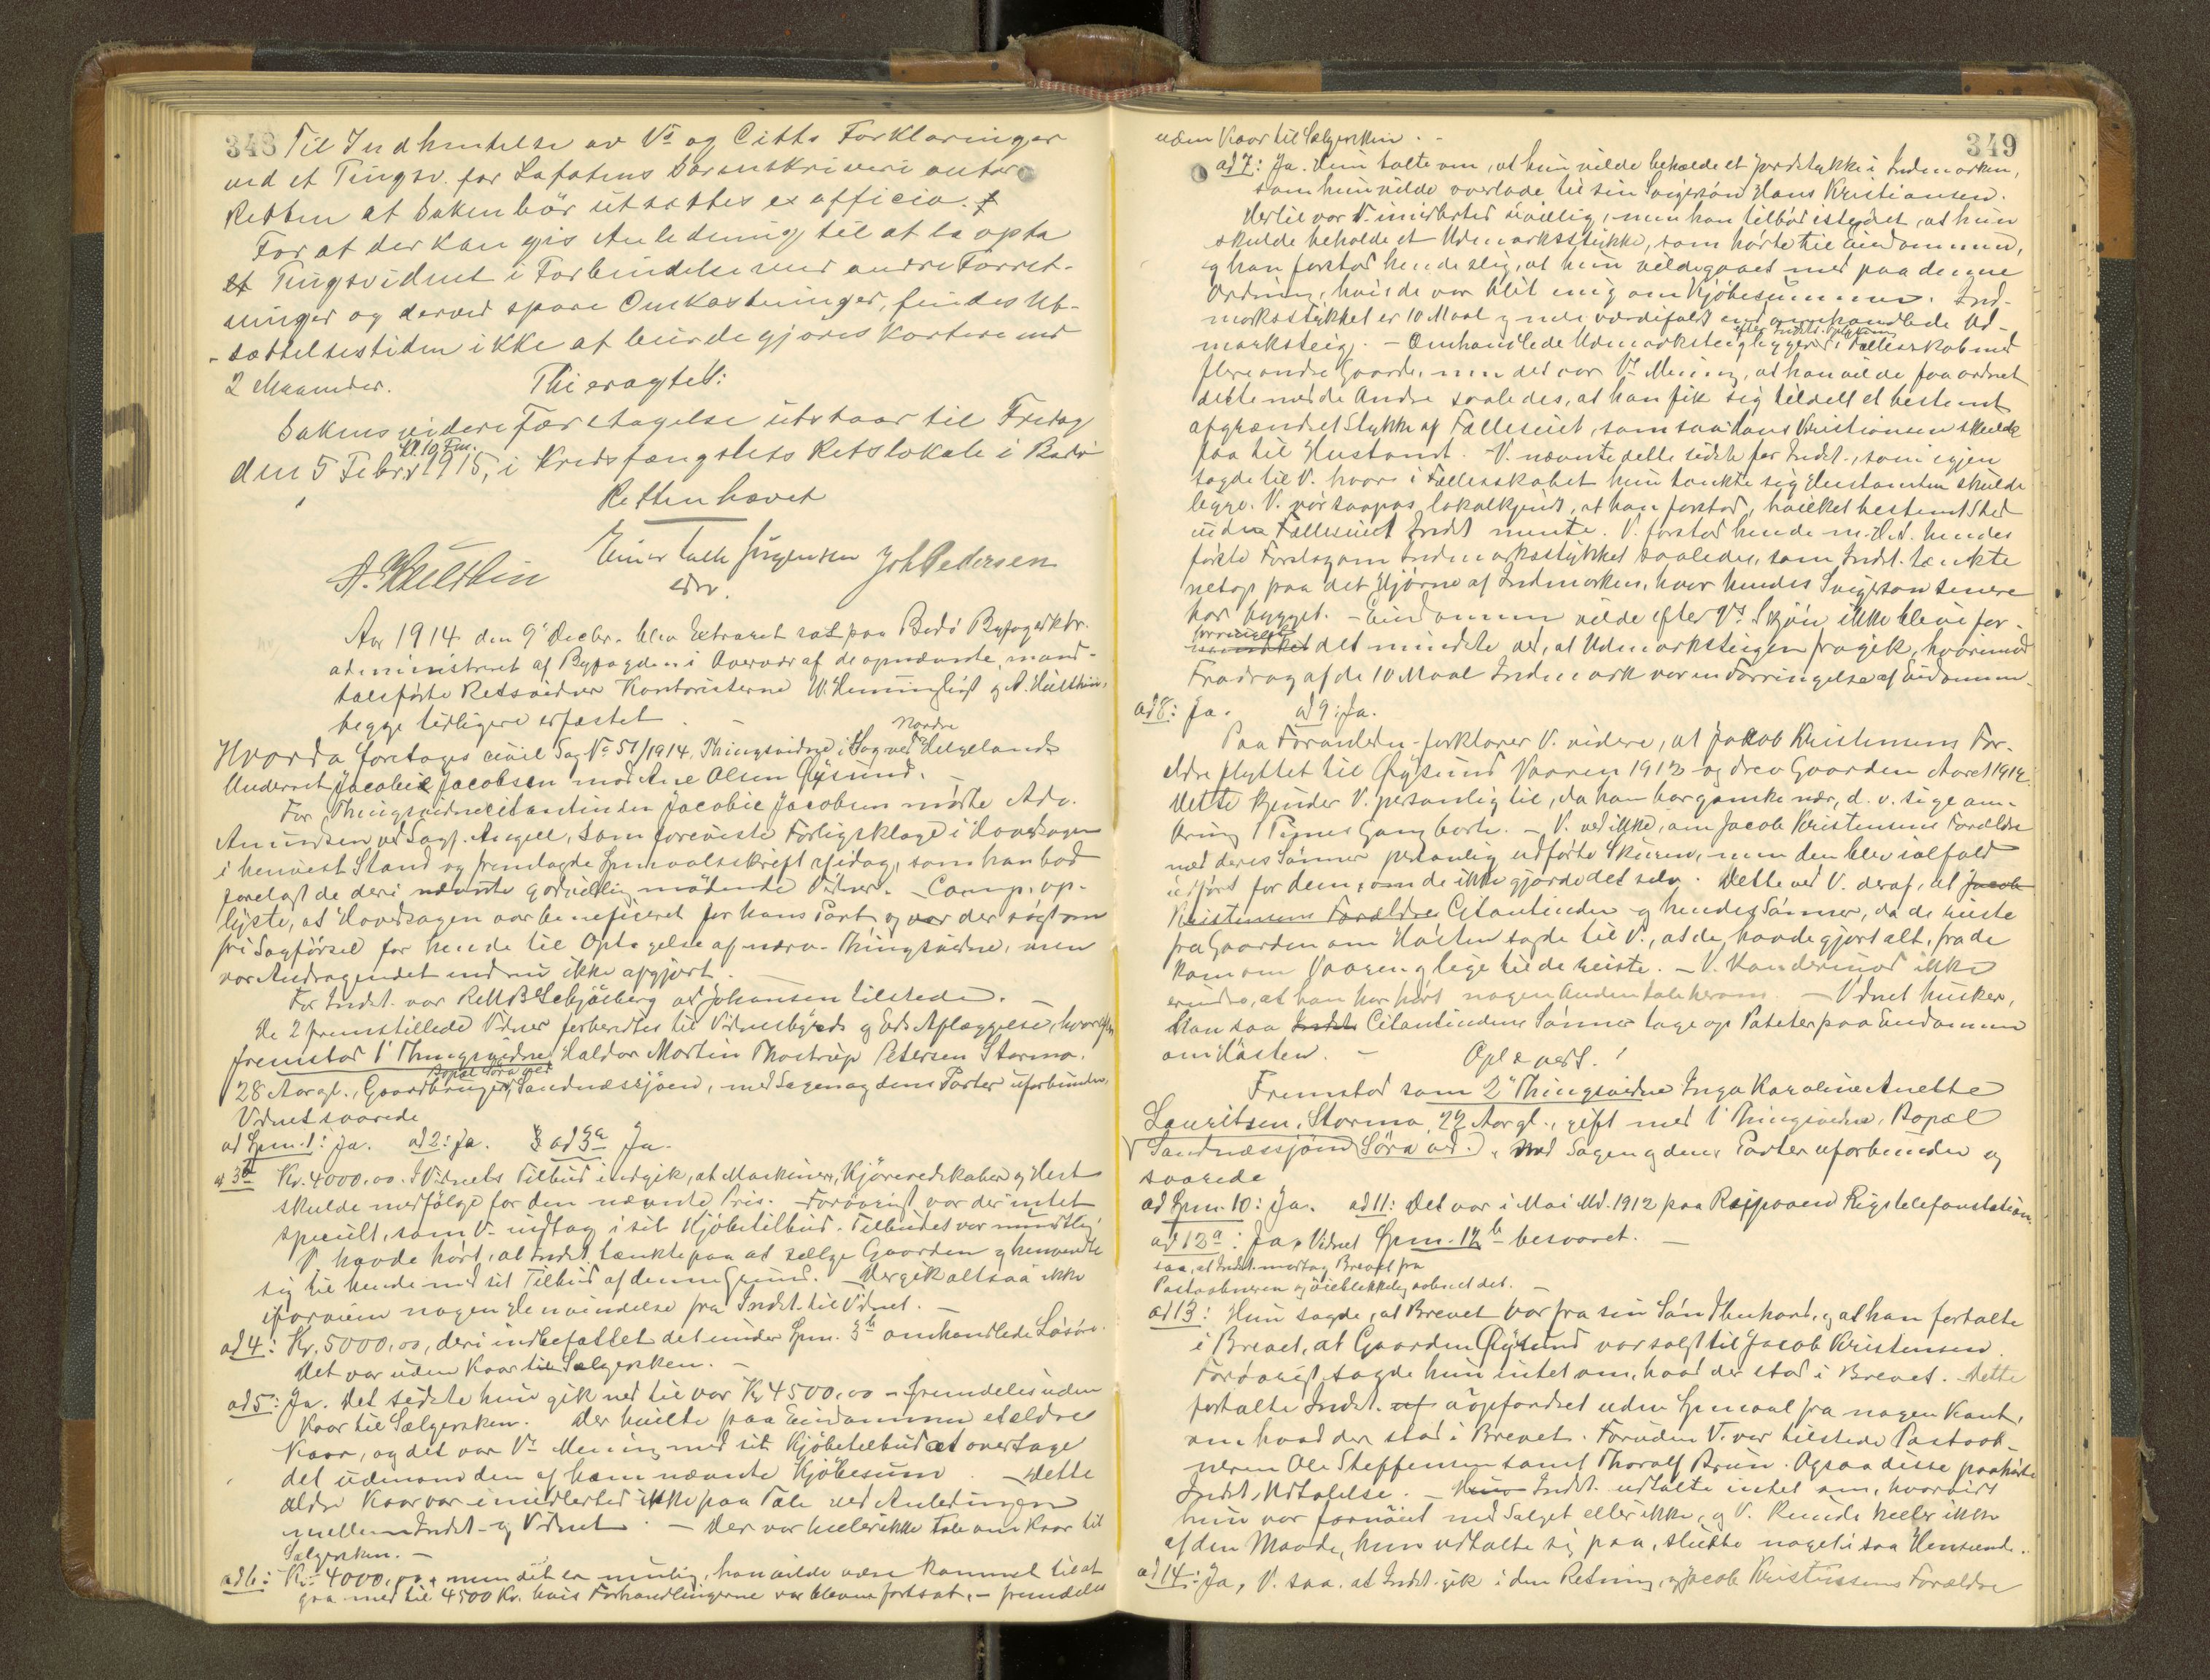 348 Til Indhentelse av Vs og Citts Forklaringer
ved et Tingsv. for Lofotens Sorenskriveri antar
Retten at Saken bör utsættes ex officio.
For at der kan gis Anledning til at la opta
et Tingsvidnet i Forbindelse med andre Forret-
ninger og derved spare Omkostninger, findes Ut-
sættelsestiden ikke at burde gjöres kortere end
2 Maaneder. Thi eragtet:
Sakens videre Foretagelse utstaar til Fredag
Kl. 10 Fm.
den 5 Febr. 1915, i Kredsfængslets Retslokale i Bodö
Retten hævet
Joh Pedersen
Aar 1914 den 9' Decbr. blev Extraret sat paa Bodö Byfogedktr.
administreret af Byfogden i Overvær af de opnævnte, mand-
talsförte Retsvidner Kontoristerne W. Henningh og A. Hulsthin,
begge tidligere erfæstet. -
Nordre
Hvorda foretoges civil Sag No 51/1914. Thingsvidne i Sag ved Helgelands
Underret Jacobie Jacobsen mod Ane Olsen Öysund.
For Thingsvidnecitantinden Jacobie Jacobsen mötte Adv.
Amundsen ved Sagf. Angell, som foreviste Forligsklage i Hovedsagen
i henvist Stand og fremlagde Spmaalsskrift af idag, som han bad
forelagt de deri nævnte godvillig mödende Vidner. - Comp. op-
lyste, at Hovedsagen var beneficeret for hans Part og var der sögt om
fri Sagförsel for hende til Optagelse af nærv. Thingsvidne, men
var Andragendet endnu ikke afgjort. -
For Indst. var Rettsk. Schjölberg ved Johansen tilstede. -
De 2 fremstillede Vidner forberedtes til Vidnesbyrds og Eds Aflæggelse, hvorefter
fremstod 1' Thingsvidne Haldor Martin Thostrup Petersen Stormo.
Bopæl Söra ved
28 Aar gl., Gaardbruger, Sandnæssjöen, med Sagen og dens Parter uforbunden,
Vidnet svarede
ad Spm. 1: Ja. ad 2: Ja. ad 3a Ja.
ad 3b Kr. 4000,00. I Vidnets Tilbud indgik, at Maskiner, Kjöreredskaber og Hest
skulde medfölge for den nævnte Pris. - Forövrigt var der intet
specielt, som V. indtog i sit Kjöbetilbud. Tilbudet var mundtlig.
V. havde hört, at Indst. tænkte paa at sælge Gaarden og henvendte
sig til hende med sit Tilbud af denne Grund. - Der gik altsaa ikke
iforveien nogen Henvendelse fra Indst. til Vidnet. -
ad 4: Kr. 5000,00, deri indbefattet det under Spm. 3b omhandlede Lösöre.
Det var uden Kaar til Sælgersken. -
ad 5: Ja. Det sidste hun gik ned til var Kr 4500,00 - fremdeles uden
Kaar til Sælgersken. Der hvilte paa Eiendommen et ældre
Kaar, og det var Vs Mening med sit Kjöbetilbud at overtage
det udenom den af ham nævnte Kjöbesum. - Dette
ældre Kaar var imidlertid ikke paa Tale ved Anledningen
mellem Indst. og Vidnet. - Der var heller ikke Tale om Kaar til
Sælgersken. -
ad 6: Kr. 4000,00, men det er mulig, han vilde være kommet til at
gaa med til 4500 Kr. hvis Forhandlingerne var blevne fortsat, - fremdeles
349
uden Kaar til Sælgersken. -
ad 7: Ja. Hun talte om, at hun vilde beholde et Jordstykke i Indmarken,
som hun vilde overlade til sin Svigersön Hans Kristiansen.
Hertil var V. imidlertid uvillig, men han tilböd istedet, at hun
skulde beholde et Udmarksstykke, som hörte til Eiendommen,
og han forstod hende slig, at hun vilde gaaet med paa denne
Ordning, hvis de var blit enig om Kjöbesummen. Ind-
marksstykket er 10 Maal og mere værdifuldt end omhandlede Ud-
efter Indst. Opgivende
marksteig. - Omhandlede Udmarksteig ligger i Fællesskab med
flere andre Gaarde, men det var Vs Mening, at han vilde faa ordnet
dette med de Andre saaledes, at han fik sig tildelt et bestemt
afgrændset Stykke af Fælleseiet, som saa Hans Kristiansen skulde
faa til Hustomt. V. nævnte dette sidste for Indst., som igjen
sagde til V. hvor i Fællesskabet hun tænkte sig Hustomten skulde
ligge. V. var saapas lokalkjendt, at han forstod, hvilket bestemt Sted
inden Fælleseiet Indst mente. V. forstod hende m. H. t. hendes
förste Forslag om Indmarksstykket saaledes, som Indst. tænkte
netop paa det Hjörne af Indmarken, hvor hendes Svigersön senere
har bygget. - Eiendommen vilde efter Vs Skjön ikke blevet for-
forringet
det mindste ved, at Udmarksteigen fragik, hvorimod
Fradrag af de 10 Maal Indmark var en Forringelse af Eiendommen.
ad 8: Ja. ad 9: Ja.
Paa Foranledn. forklarer V. videre, at Jakob Kristensens For-
ældre flyttet til Öysund Vaaren 1912 og drev Gaarden Aaret 1912.
Dette kjender V. personlig til, da han bor ganske nær, d. v. sige om-
kring 1 Times Gang borte. - V. ved ikke, om Jacob Kristensens Forældre
med deres Sönner personlig udförte Skuren, men den blev ialfald
udfört for dem, om de ikke gjorde det selv. Dette ved V. deraf, at Jacob
Kristensens Forældre Citantinden og hendes Sönner, da de reiste
fra Gaarden om Hösten sagde til V., at de havde gjort alt, fra de
kom om Vaaren og lige til de reiste. - V. kan derimod ikke
erindre, at han har hört nogen Anden tale herom. - Vidnet husker,
han saa Indst. Citantindens Sönner tage op Poteter paa Eiendommen
om Hösten. - Oplæst.!
Fremstod som 2' Thingsvidne Inga Karoline Anette
Lauritsen, Stormo, 22 Aar gl., gift med 1' Thingsvidne, Bopæl
Sandnæssjöen (Söra ved). Med Sagen og dens Parter uforbunden og
svarede
ad Spm. 10: Ja. ad 11: Det var i Mai Md. 1912 paa Rigstelefonstation.
ad 12a: Ja, Vidnet Spm. 12b besvaret. -
saa, at Indst. modtog Brevet fra
Postaabneren og öieblikkelig aabnet det. -
ad 13: Hun sagde, at Brevet var fra sin Sön Thenhard, og at han fortalte
i Brevet, at Gaarden Öysund var solgt til Jacob Kristensen.
Forövrigt sagde hun intet om, hvad der stod i Brevet. Dette
fortalte Indst. uopfordret uden Spmaal fra nogen Kant,
om hvad der stod i Brevet. Foruden V. var tilstede Postaab-
neren Ole Steffensen samt Thoralf Brun. Ogsaa disse paahörte
Indst. Udtalelse. - Indst. udtalte intet om, hvorvidt
hun var fornöiet med Salget eller ikke, og V. kunde heller ikke
af den Maade, hun udtalte sig paa, slutte noget i saa Henseende.
ad 14: Ja, V. saa, at Indst. gik i den Retning, og Jacob Kristensens Forældre